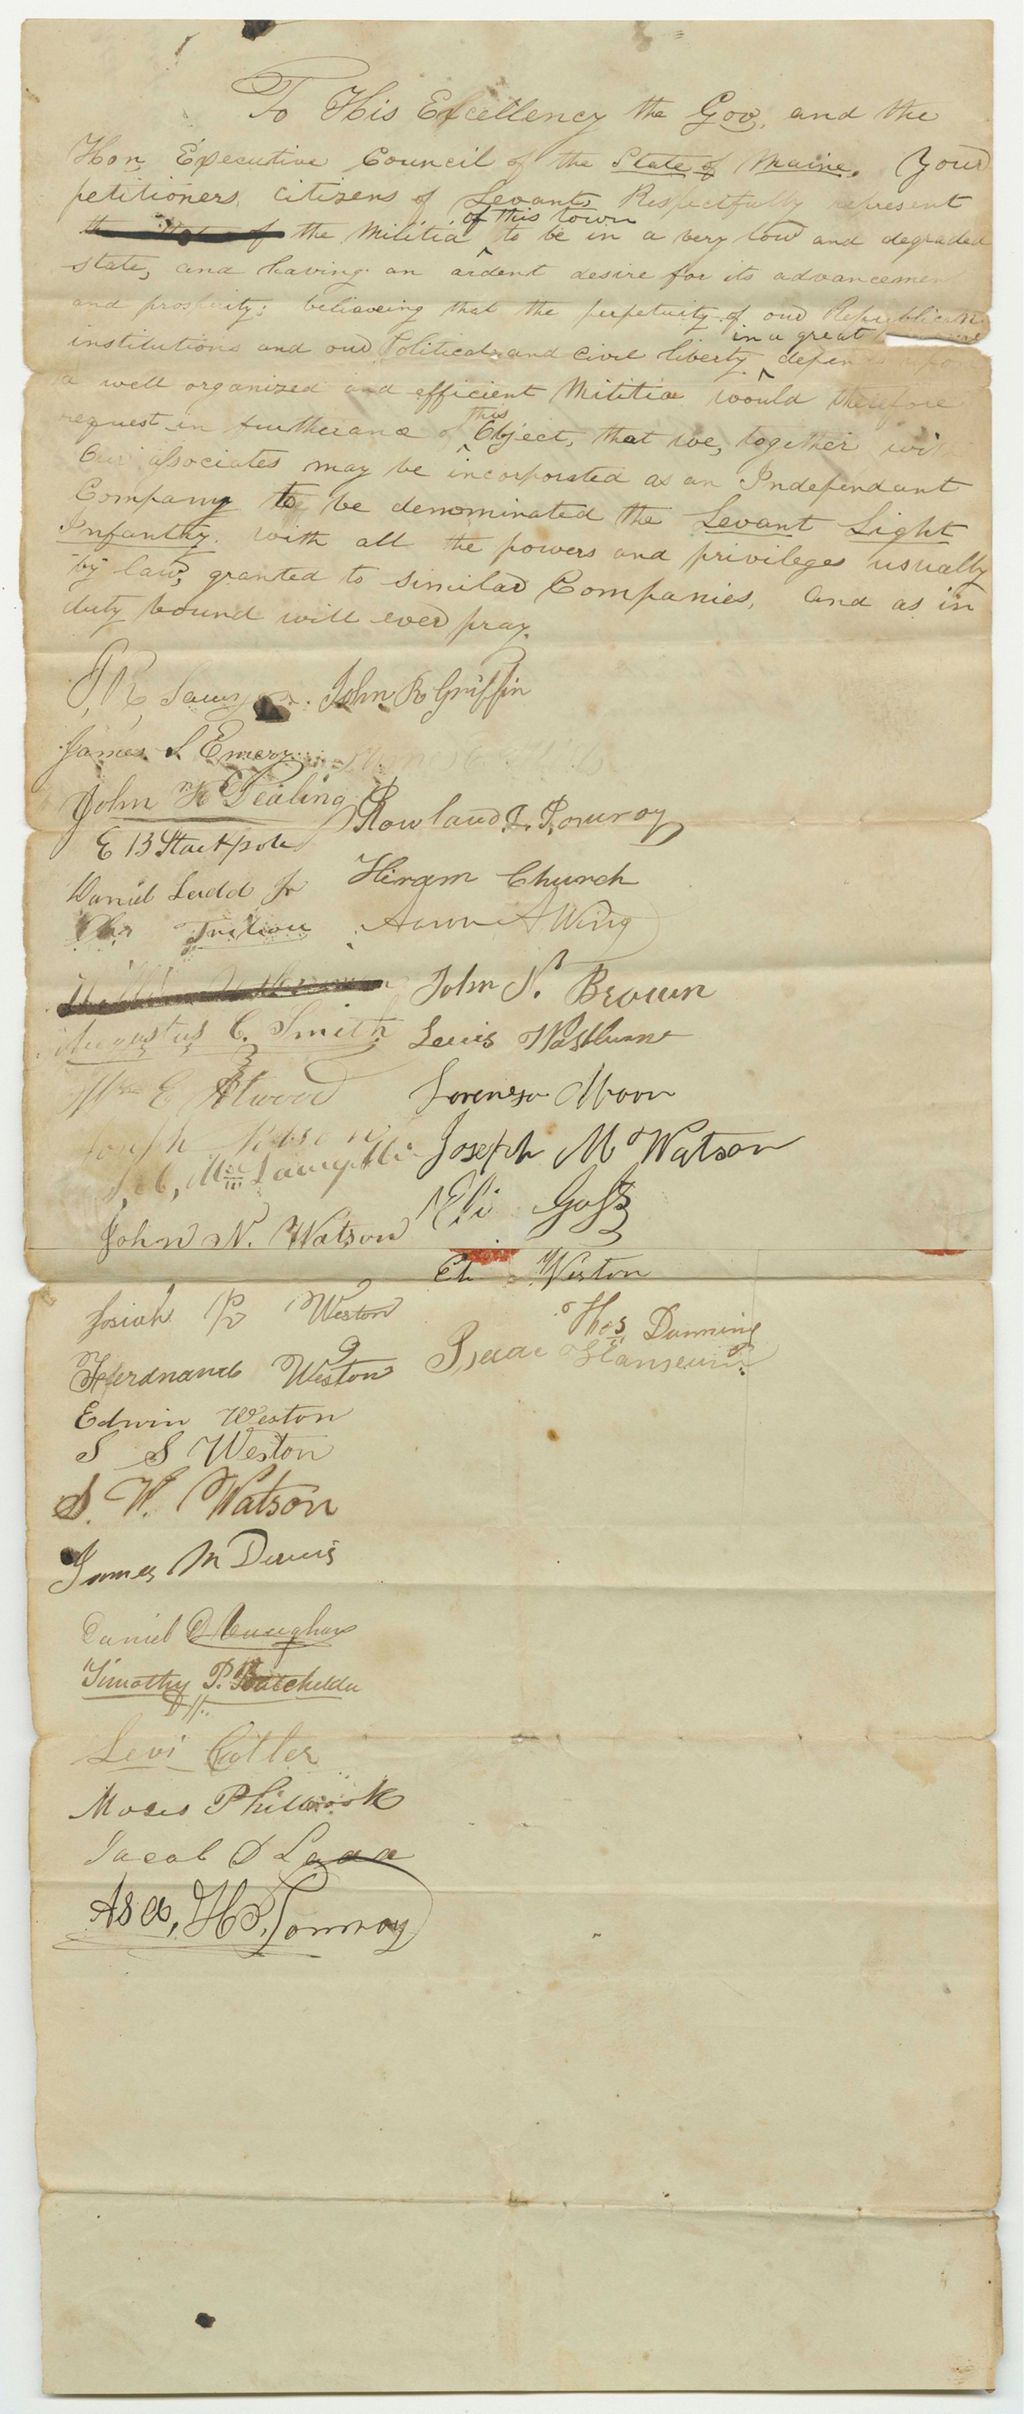 To His Excellency the Gov. and the
Hon, Executive Council of the State of Maine. Your
petitioners, citizens of Levant, Respectfully represent
of this town
the Militia to be in a very low and degraded
state, and having an ardent desire for its advancemen
and prosperity; believeing that the perpetuity of our Republican
in a great
institutions and our Political and civil liberty depends upon
a well organized and efficient Militia would therefore
this
request in furtherance of Object, that we, together wi
Our associates may be incorporated as an Independant
Company to be denominated the Levant Light
Infantry. with all the powers and privileges usually
by law, granted to similar Companies, and as in
duty bound will ever pray.
John R Griffin
James S Emery
John
Rowland Pomroy
E B Stackpole
Daniel Ladd Jr
Hiram Church
Aaron A Wing
John N. Brown
Augustus C. Smith
Lewis Washburne
Wm E Atwood
Lorenzo Moor
Joseph
Joseph M Watson
Eli Goss
John N. Watson
Weston
Josiah Weston
Thos Dunning
Ferdnand Weston
Isaac
Edwin Weston
S S Weston
S. W. Watson
James M Dennis
Daniel
Timothy P. Batchelder
Levi Cotler
Moses Philbrook
Jacob D
Asa, H P, Pomroy